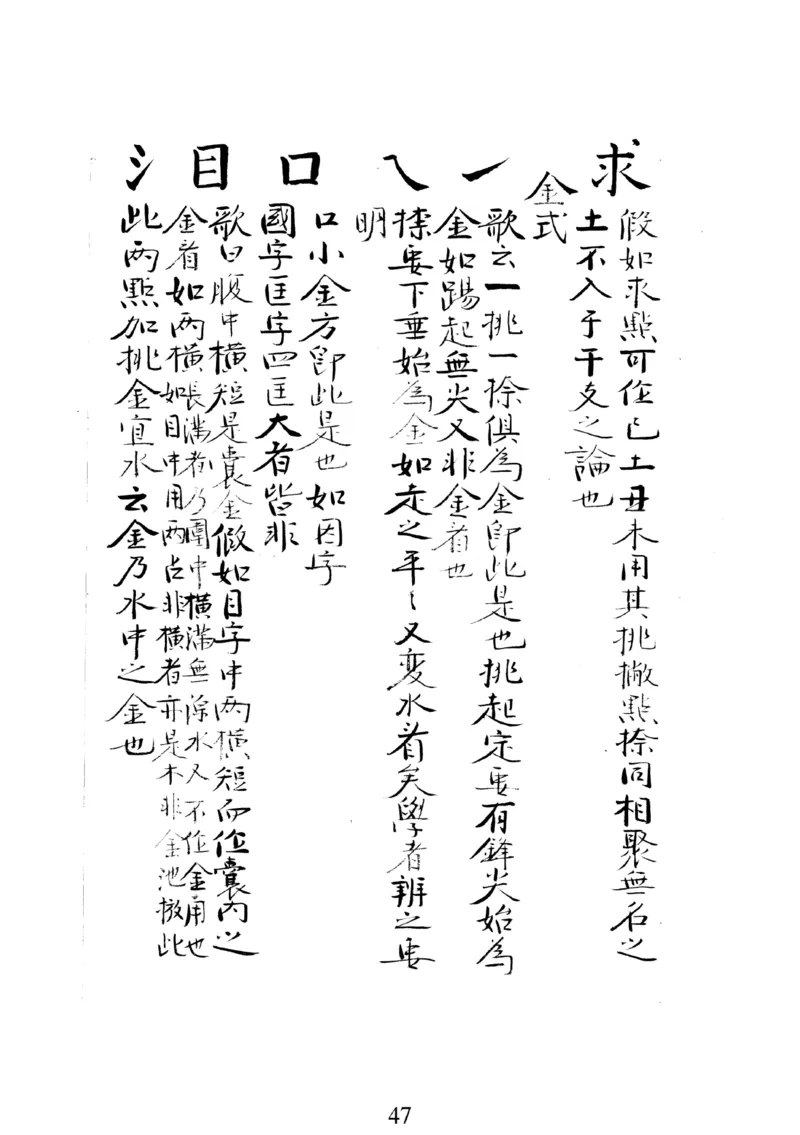 求
假如求點可作已土丑未用其挑撇點捺同相聚無名之
土不入于干支之論也
金式
㇀
歌云一挑一捺俱為金即此是也挑起定要有鋒尖始為
金如踢起無尖又非金者也
㇏
捺要下垂始為金如走之平平又变水着矣學者辨之要
明
口
口小金方即此是也如因字
國字匡字四匡大者皆非
目
歌曰腹中橫短是囊金假如目字中两橫短而作囊內之
金者如两橫長滿者乃圍中橫滿無際水又不作金甪也
如目中用两点非橫者亦是木非金池倣此
氵
此两點加挑金宜水云金乃水中之金也
47